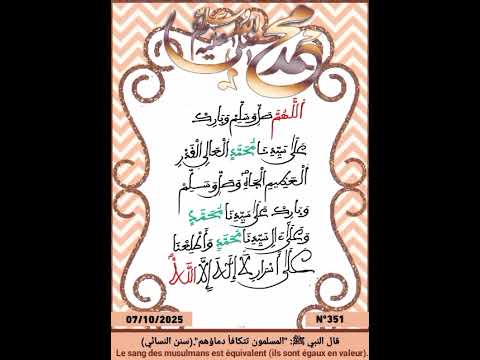 محمد صلى الله عليه وسلم
اللهم صل وسلم وبارك
على سيدنا محمد العالي القدر
العظيم الجاه وصل وسلم
وبارك على سيدنا محمد
وعلى ءال سيدنا محمد وأطلعنا
على أسرار لا إله إلا الله
07/10/2025
N°351
قال النبي ﷺ: "المسلمون تتكافأ دماؤهم".(سنن النسائي)
Le sang des musulmans est équivalent (ils sont égaux en valeur).